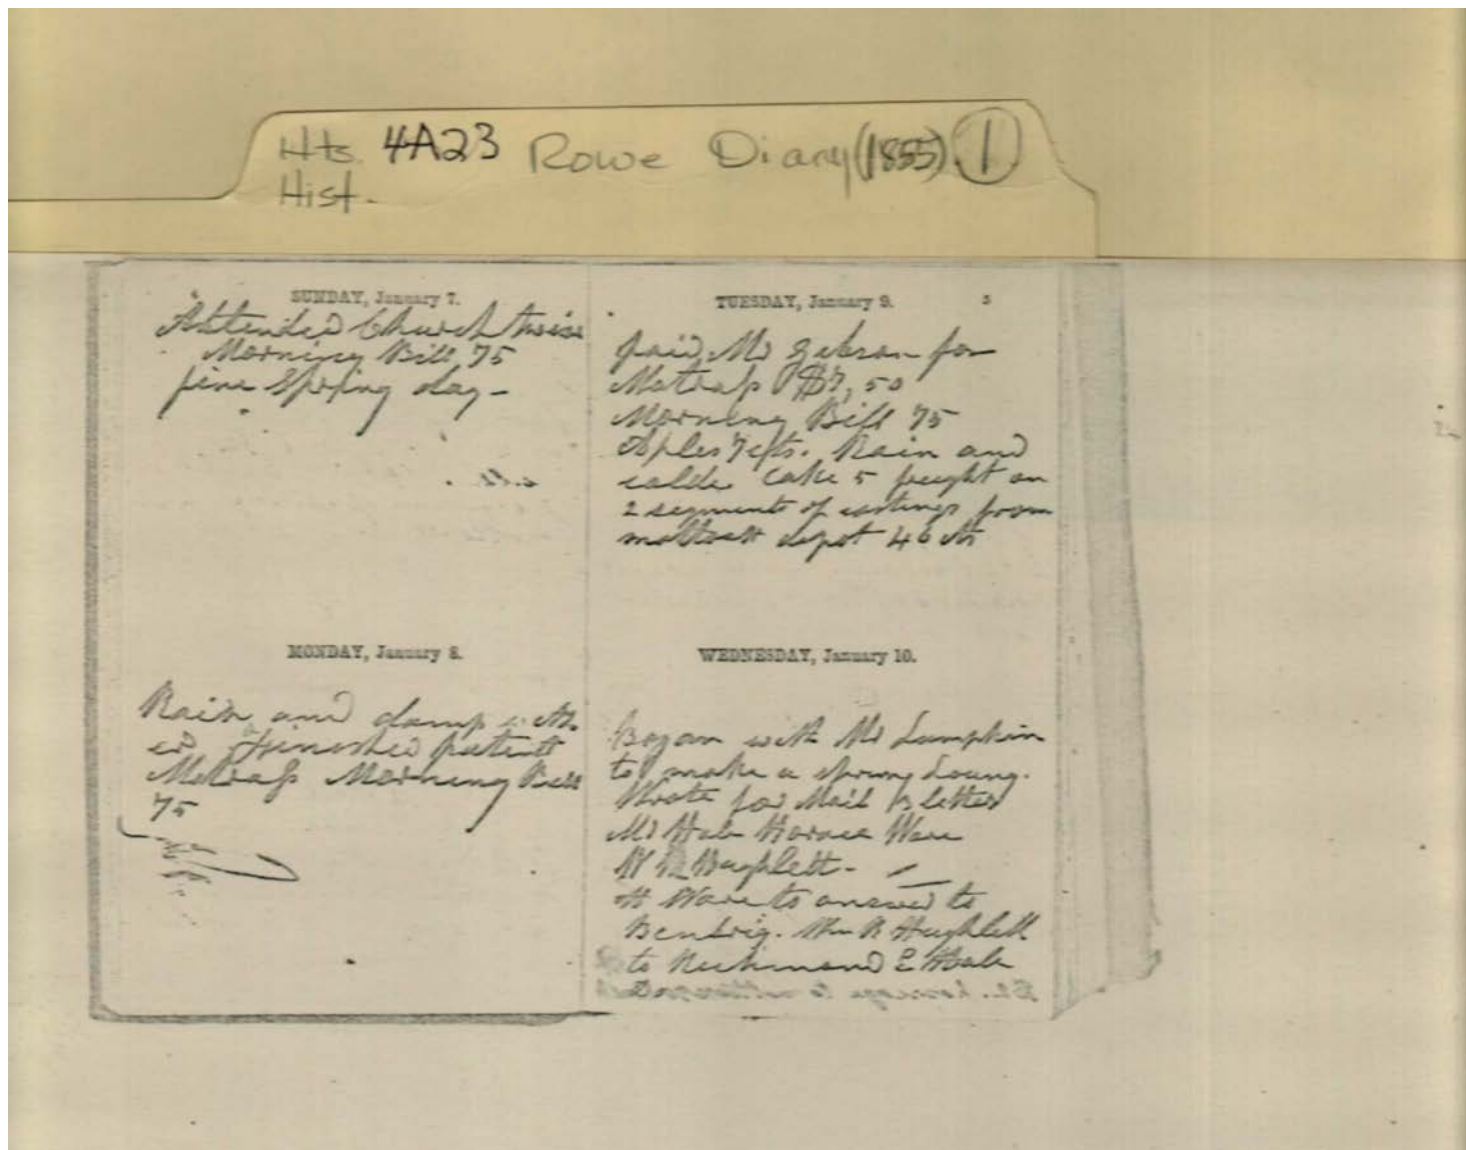 Hts. 4A23 Rowe Diary (1855) 1
Hist.
SUNDAY, January 7.
Attended Church twise
Morning Bill 75
fine Spring day -
MONDAY, January 8.
Rain and damp
finished patent
Matrass Morning Bill
75
TUESDAY, January 9. 5
paid Mr for
Matrass $7,50
Morning Bill 75
Aples 7 cts. Rain and
colde Cake 5 freight on
2 segments of castings from
depot 46 cts
WEDNESDAY, January 10.
Began with Mr Lumpkin
to make a sprung Loung.
Wrote for Mail 3 letters
Mr Hale Horace Ware
W R Hughlett -
H Ware to answer to
Wm R Hughlett
to Richmond E Hale